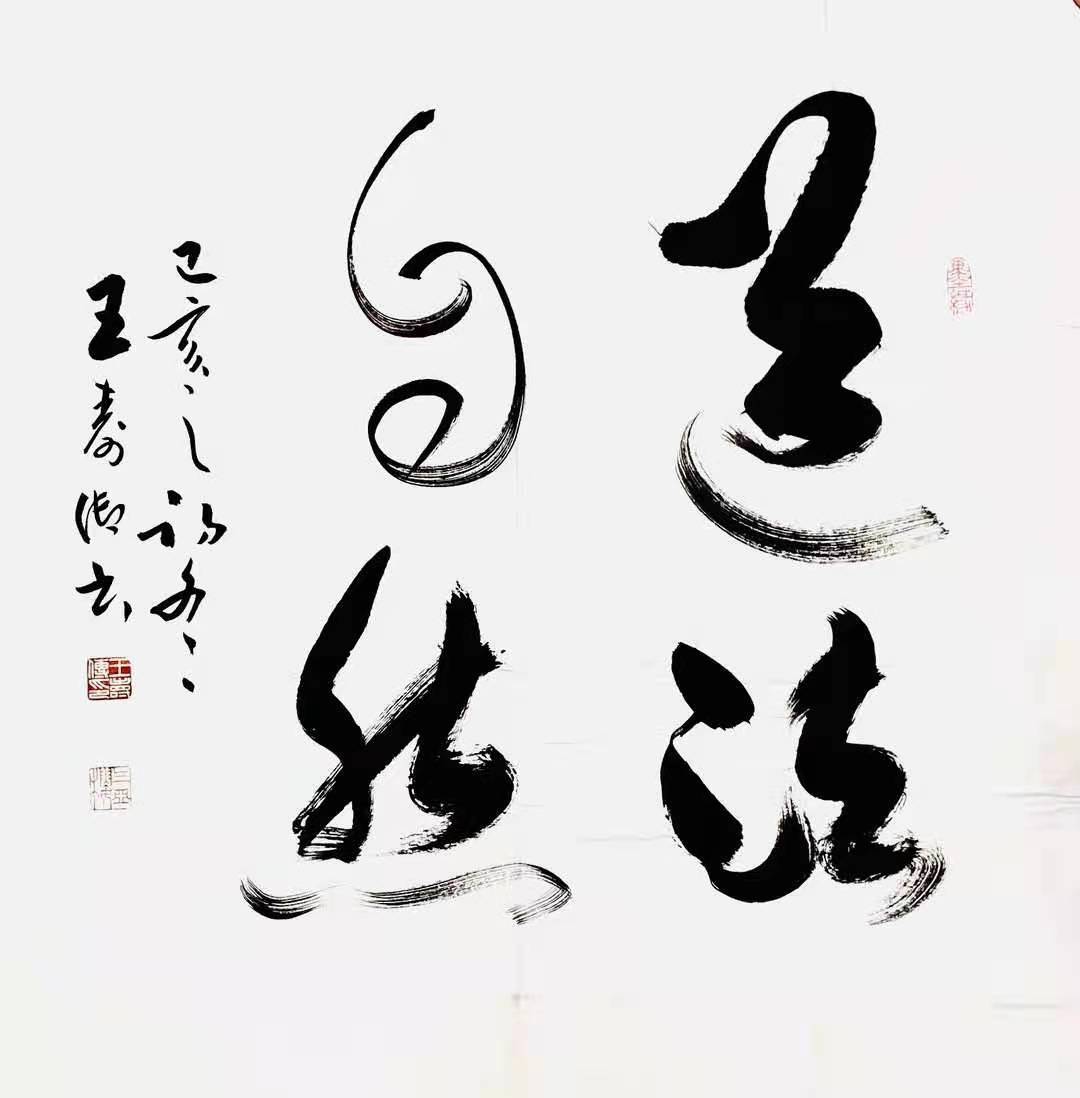 道法
自然
己亥之初冬
王寿
书